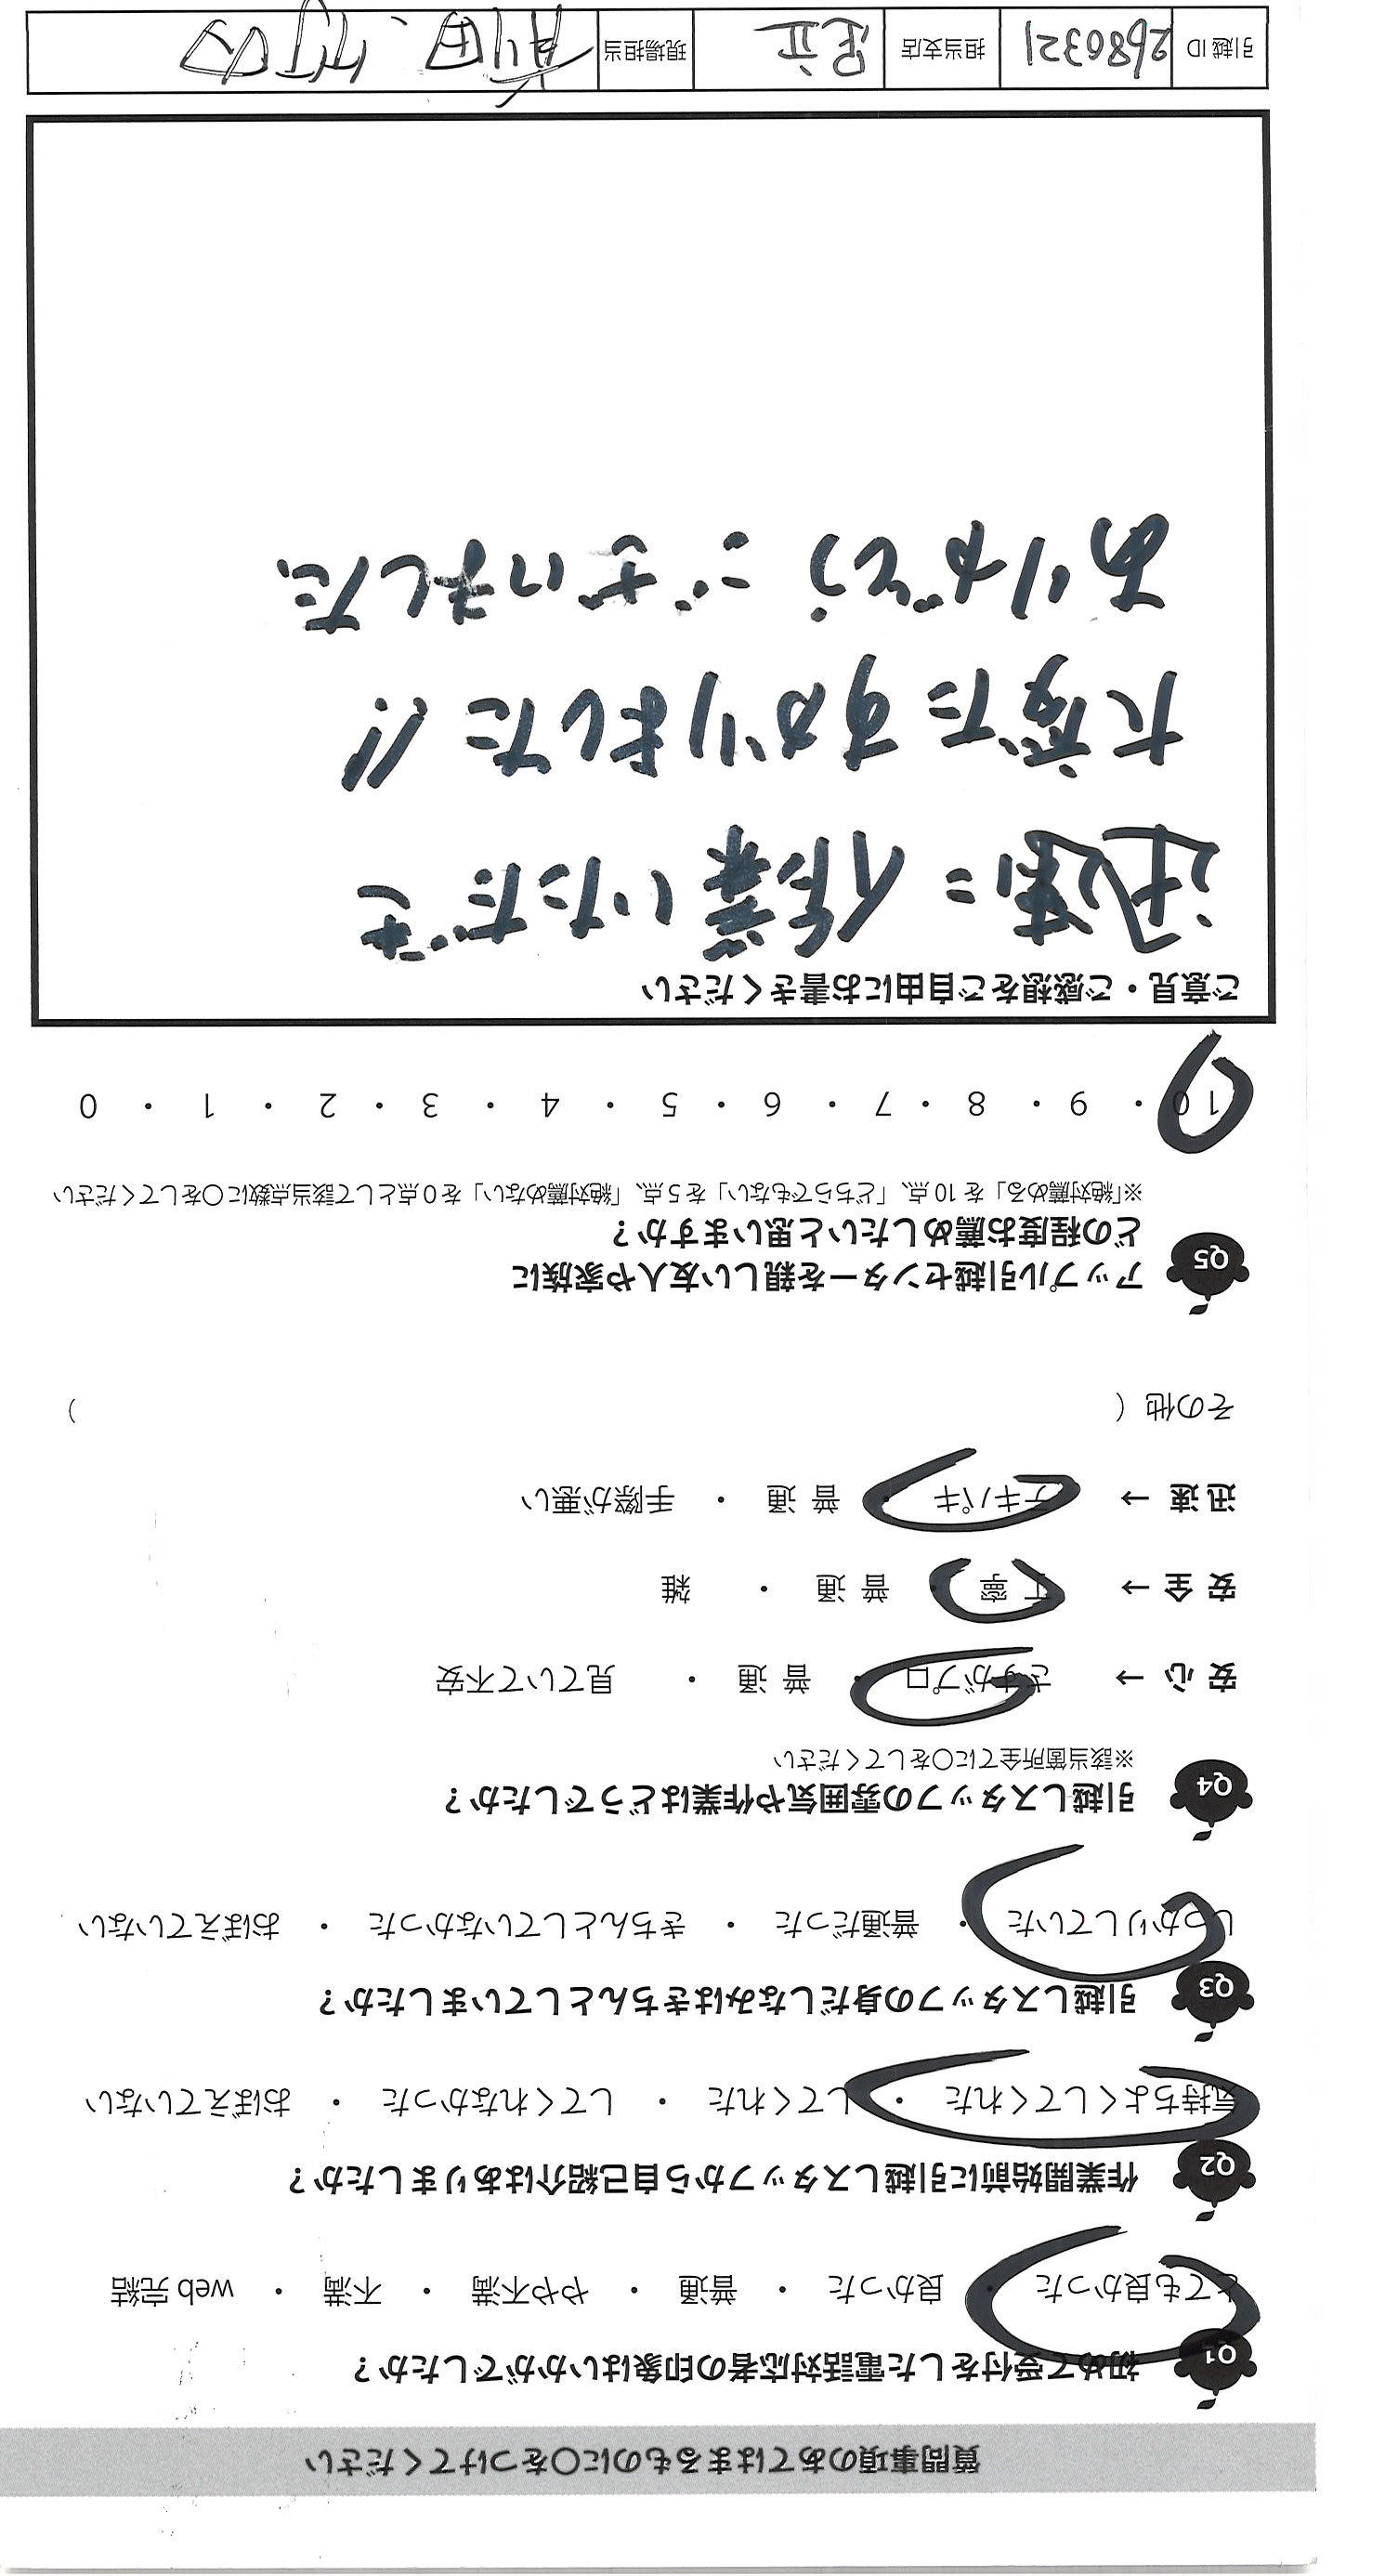 質問事項のあてはまるものに〇をつけてください
Q1 初めて受付をした電話対応者の印象はいかがでしたか？
とても良かった ・ 良かった ・ 普通 ・ やや不満 ・ 不満 ・ web 完結
Q2 作業開始前に引越しスタッフから自己紹介はありましたか？
気持ちよくしてくれた ・ してくれた ・ してくれなかった ・ おぼえていない
Q3 引越しスタッフの身だしなみはきちんとしていましたか？
しっかりしていた ・ 普通だった ・ きちんとしていなかった ・ おぼえていない
Q4 引越しスタッフの雰囲気や作業はどうでしたか？
※該当箇所全てに〇をしてください
安 心 → さすがプロ ・ 普 通 ・ 見ていて不安
安 全 → 丁 寧 ・ 普 通 ・ 雑
迅 速 → テキパキ ・ 普 通 ・ 手際が悪い
その他（ ）
Q5 アップル引越センターを親しい友人や家族に
どの程度お薦めしたいと思いますか？
※「絶対薦める」を 10 点、「どちらでもない」を 5 点、「絶対薦めない」を 0 点として該当点数に〇をしてください
10 ・ 9 ・ 8 ・ 7 ・ 6 ・ 5 ・ 4 ・ 3 ・ 2 ・ 1 ・ 0
ご意見・ご感想をご自由にお書きください
迅速に作業いただき
大変たすかりました!!
ありがとうございました。
引越 ID 2680321 担当支店 足立 現場担当